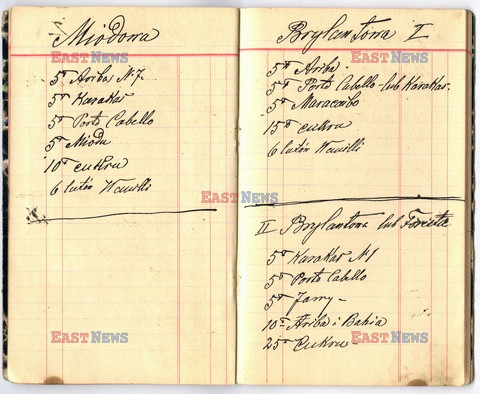 Miodowa
5 ū Ariba N. 7.
5 ū Karakas
5 ū Porto Cabello
5 ū Miodu
10 ū cukru
6 łutów Wanilli
Brylantowa I
5 ū Ariba.
5 ū Porto Cabello lub Karakas.
5 ū Maracaibo
15 ū cukru
6 łutów Wanilli
II Brylantowa lub
5 ū Karakas N 1
5 ū Porto Cabello
5 ū Jawy
10 ū Ariba i Bahia
25 ū Cukru
EAST NEWS
EAST NEWS
EAST NEWS
EAST NEWS
EAST NEWS
EAST NEWS